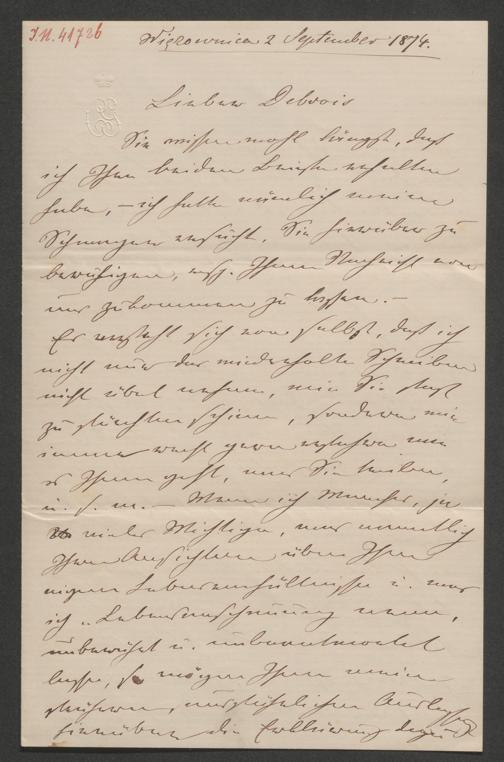 I.N. 41726
Więzownica 2 September 1874.
Lieber Debrois
Sie wissen wohl längst, daß
ich Ihre beiden Briefe erhalten
habe, – ich hatte nämlich meinen
Schwager ersucht, Sie hierüber zu
beruhigen, resp. Ihnen Nachricht von
mir zukommen zu lassen. –
Es versteht sich von selbst, daß ich
nicht nur das wiederholte Schreiben
nicht übel nehme, wie Sie fast
zu fürchten schienen, sondern mich
immer recht gern erfahre wie
es Ihnen geht, was Sie treiben,
u. s. w. – Wenn ich Manches, ja
vieles Wichtige, was namentlich
Ihre Ansichten über Ihre
eigenen Lebensverhältnisse u. was
ich „Lebensanschauung nenne,
unberührt u. unbeantwortet
lasse, so mögen Ihnen meine
früheren, ausführlichen Auslassungen
hierüber die Erklärung dazu